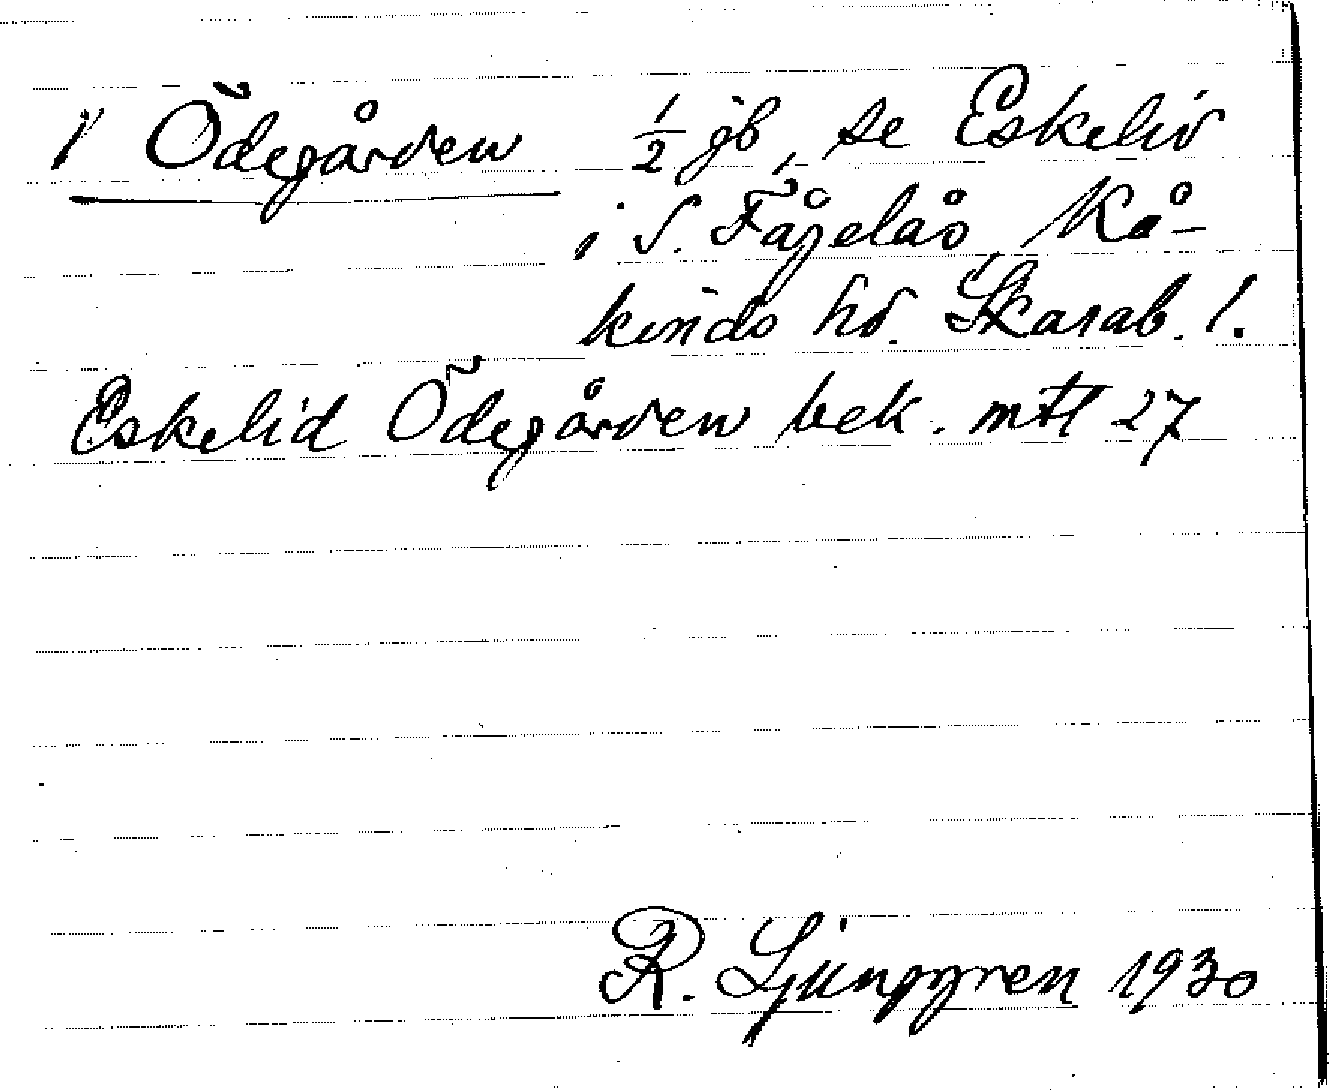 1' Ödegården ½ jb, se Eskelid
i S. Fågelås, Kå-
kinds hd. Skarab. l.
Eskelid Ödegården bek. mtl 27
R. Ljunggren 1930